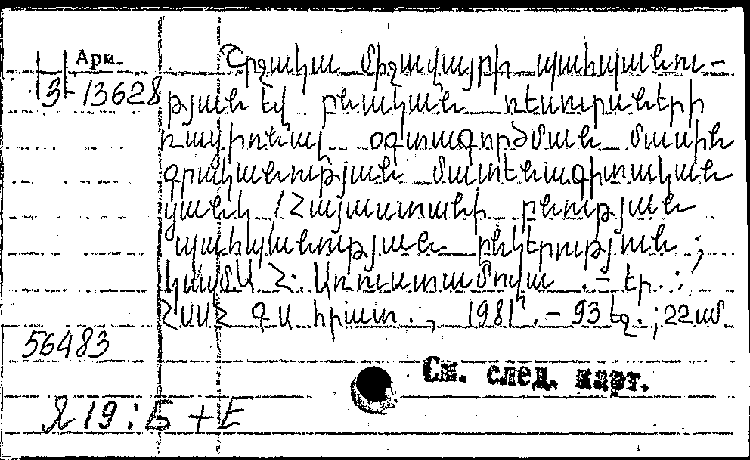 Арм.
3-13628
Շրջակա միջավայրի պահպանու-
թյան եվ բնական ռեսուրսների
ռացիոնալ օգտագործման մասին
գրականության մատենագիտական
ցանկ / Հայաստանի բնության
պահպանության ընկերություն ;
Կազմ. Հ. Առուստամովա . – Եր. :
ՀՍՍՀ ԳԱ հրատ., 1981. – 93 էջ. ; 22 սմ.
56483
См. след. карт.
Я 19 : Б + Е